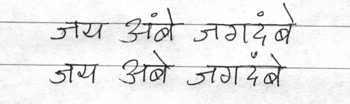 जय अंबे जगदंबे
जय अबे जगदंबे